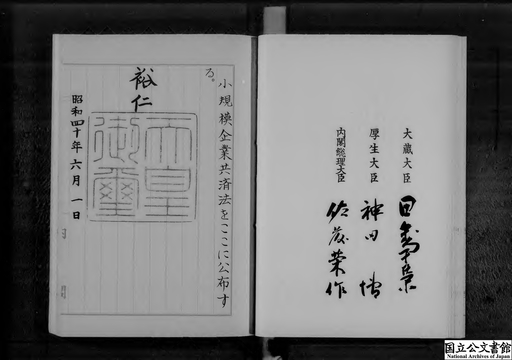 大蔵大臣 田中角榮
厚生大臣 神田 博
内閣総理大臣 佐藤榮作
小規模企業共済法をここに公布す
る。
裕仁
天皇
御璽
昭和四十年六月一日
国立公文書館
National Archives of Japan